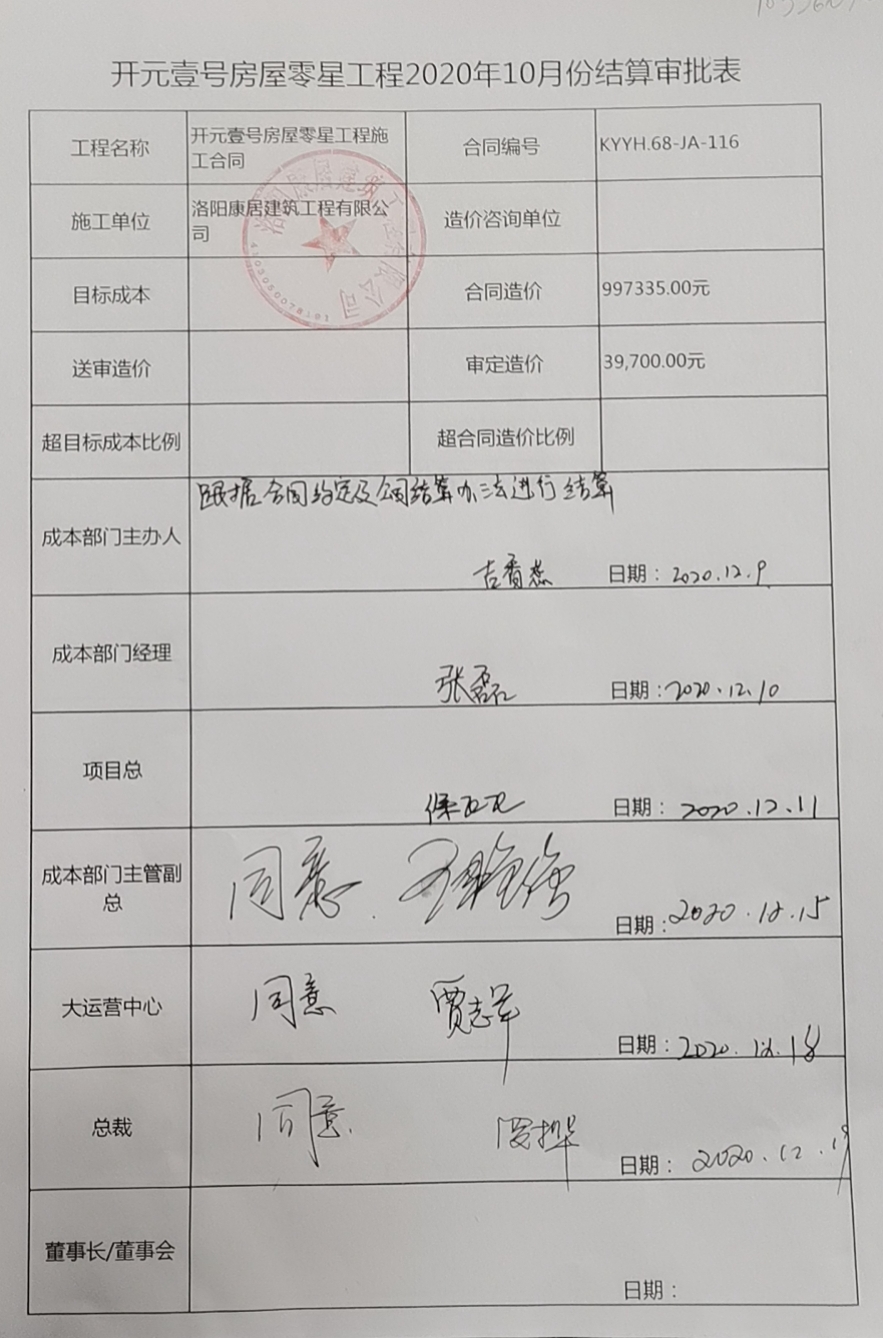 开元壹号房屋零星工程2020年10月份结算审批表
工程名称
开元壹号房屋零星工程施
工合同
合同编号
KYYH.68-JA-116
施工单位
洛阳康居建筑工程有限公
司
造价咨询单位
洛阳康居建筑工程有限公司
4103050078191
目标成本
合同造价
997335.00元
送审造价
审定造价
39,700.00元
超目标成本比例
超合同造价比例
跟据合同约定及公司结算办法进行结算
成本部门主办人
日期：2020.12.9
成本部门经理
张磊
日期：2020.12.10
项目总
日期：2020.12.11
成本部门主管副
总
同意
日期：2020.12.15
大运营中心
同意 贾志军
日期：2020.12.18
总裁
同意
日期：2020.12.19
董事长/董事会
日期：